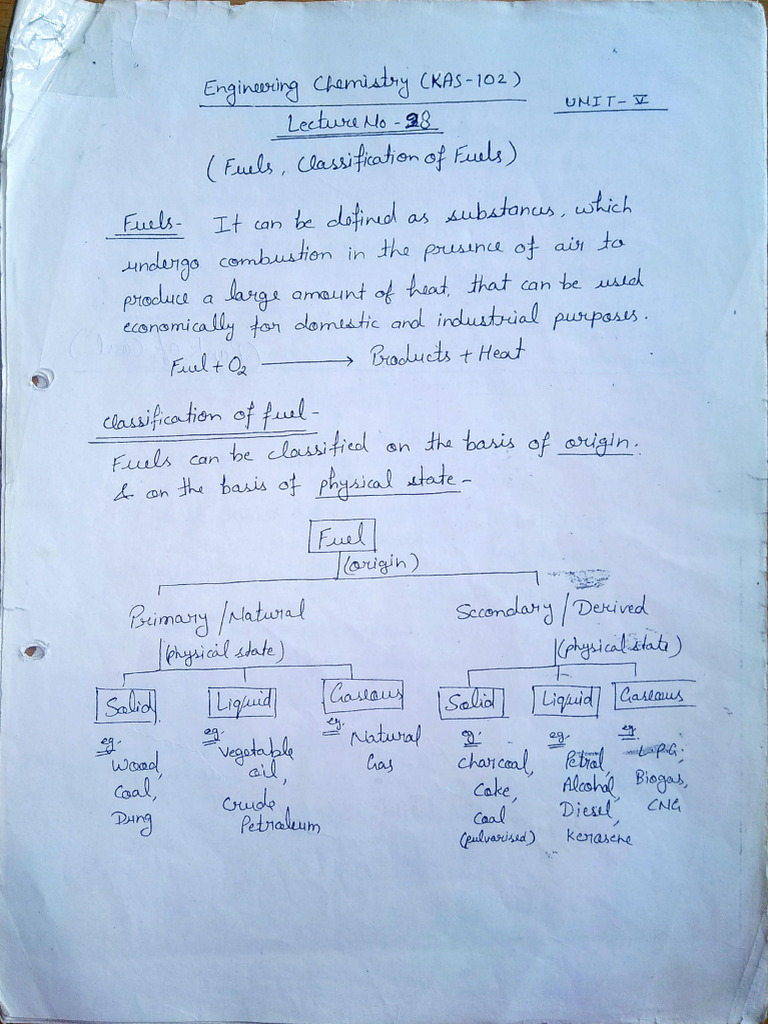 Engineering Chemistry (KAS-102)
UNIT-V
Lecture No - 28
(Fuels, Classification of Fuels)
Fuels- It can be defined as substances, which
undergo combustion in the presence of air to
produce a large amount of heat, that can be used
economically for domestic and industrial purposes.
Fuel + O2 → Products + Heat
Classification of fuel-
Fuels can be classified on the basis of origin.
& on the basis of physical state-
Fuel
(origin)
Primary/Natural Secondary/Derived
(physical state) (physical state)
Solid Liquid Gaseous Solid Liquid Gaseous
eg. eg. eg. eg. eg. eg.
Wood, Vegetable Natural Charcoal, Petrol, L.P.G,
Coal, oil, Gas Coke, Alcohol, Biogas,
Dung Crude Coal Diesel, CNG
Petroleum (pulvarised) Kerosene